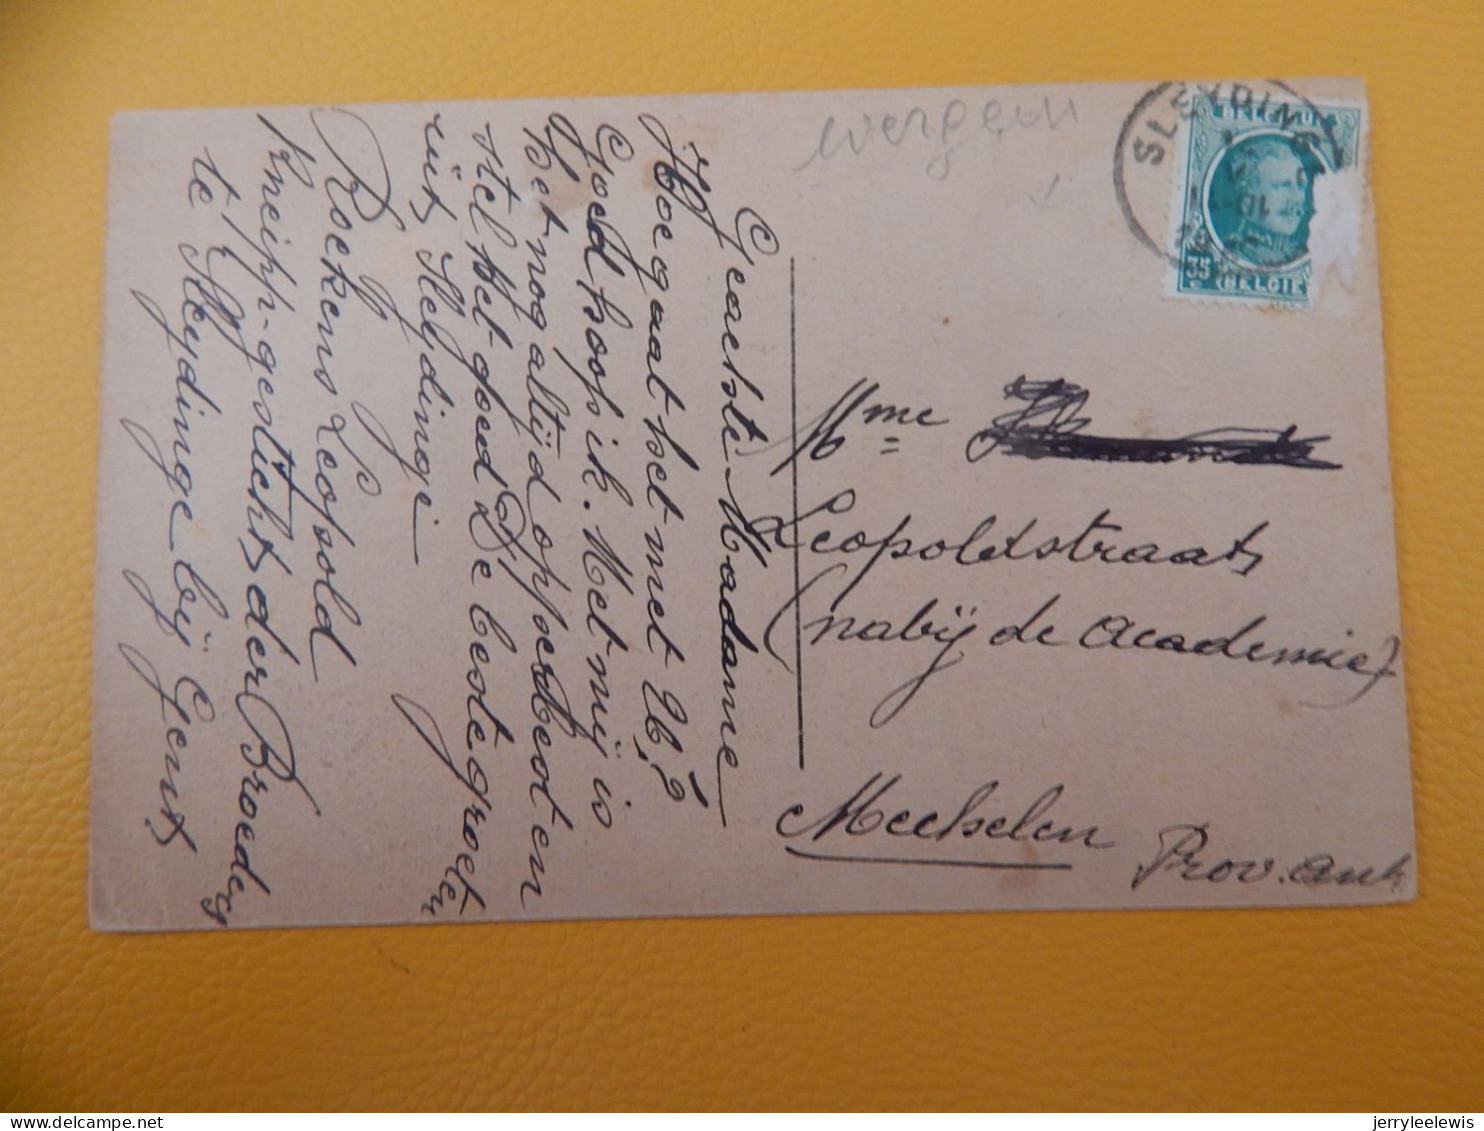 Geachte Madame
Hoe gaat het met U,?
Goed hoop ik. Met mij is
het nog altijd opperbest en
stel het goed. De beste groeten
uit Sleydinge
Rockens Leopold
Kneipp-gesticht der Broeders
te Sleydinge bij Gent
evergem
SLEYDINGE
BELGIQUE
35 c
BELGIË
Mme
Leopoldstraat
(nabij de Academie)
Mechelen
Prov. Ant
jerryleelewis